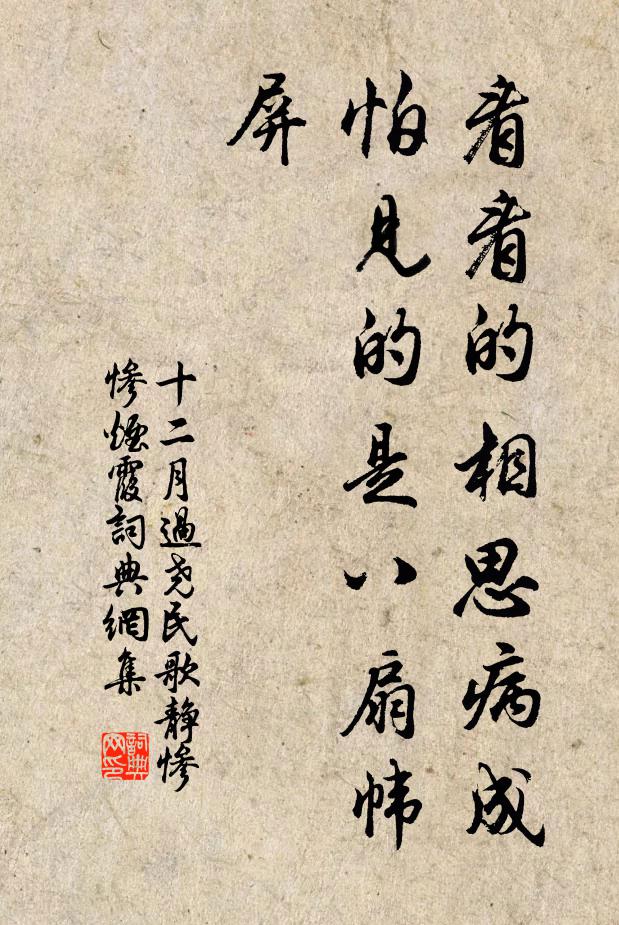 看看的相思病成
怕見的是八扇幃
屏
十二月過尧民歌静惨
惨煙霞詞典網集
詞典網印